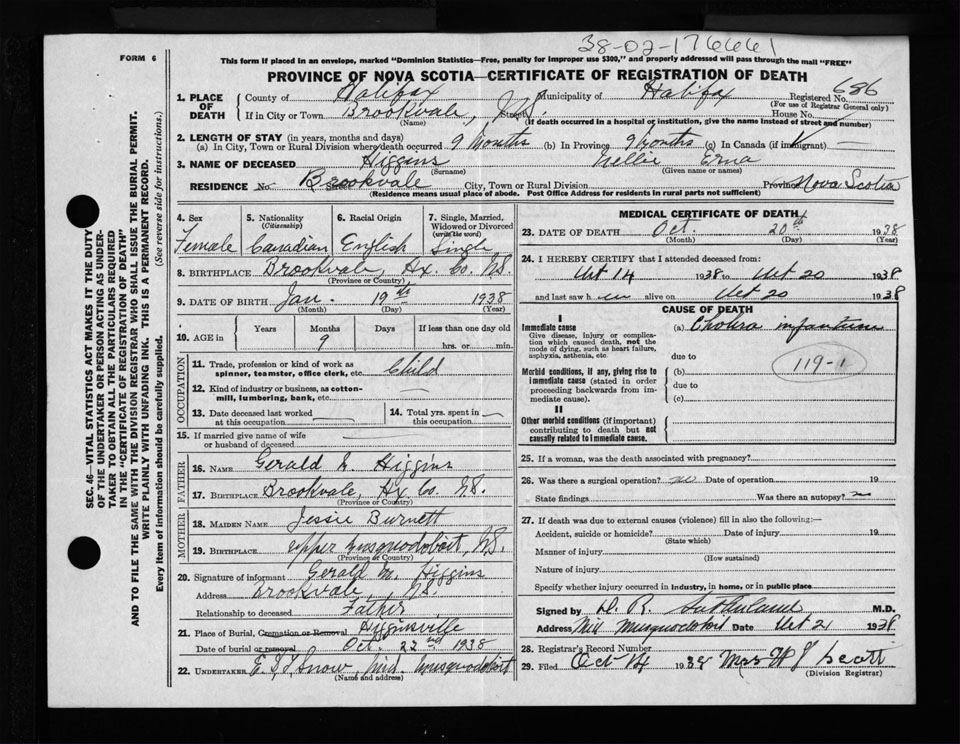 38-02-176661
FORM 6
This form if placed in an envelope, marked "Dominion Statistics—Free, penalty for improper use $300," and properly addressed will pass through the mail "FREE"
PROVINCE OF NOVA SCOTIA—CERTIFICATE OF REGISTRATION OF DEATH
SEC. 46—VITAL STATISTICS ACT MAKES IT THE DUTY
OF THE UNDERTAKER OR PERSON ACTING AS UNDER-
TAKER TO OBTAIN ALL THE PARTICULARS REQUIRED
IN THE "CERTIFICATE OF REGISTRATION OF DEATH"
AND TO FILE THE SAME WITH THE DIVISION REGISTRAR WHO SHALL ISSUE THE BURIAL PERMIT.
WRITE PLAINLY WITH UNFADING INK. THIS IS A PERMANENT RECORD.
Every item of information should be carefully supplied. (See reverse side for instructions.)
1. PLACE OF DEATH
County of Halifax Municipality of Halifax Registered No. 686
(For use of Registrar General only)
If in City or Town Brookvale, N.S. Street House No.
(Name) (If death occurred in a hospital or institution, give the name instead of street and number)
2. LENGTH OF STAY (in years, months and days)
(a) In City, Town or Rural Division where death occurred 9 Months (b) In Province 9 Months (c) In Canada (if immigrant) —
3. NAME OF DECEASED Higgins Nellie Erna
(Surname) (Given name or names)
RESIDENCE No. Street Brookvale City, Town or Rural Division Province Nova Scotia
(Residence means usual place of abode. Post Office Address for residents in rural parts not sufficient)
4. Sex
Female
5. Nationality
(Citizenship)
Canadian
6. Racial Origin
English
7. Single, Married,
Widowed or Divorced
(write the word)
Single
8. BIRTHPLACE Brookvale, Hx. Co. N.S.
(Province or Country)
9. DATE OF BIRTH Jan. 19th 1938
(Month) (Day) (Year)
10. AGE in
Years Months Days If less than one day old
9 hrs. or min.
OCCUPATION
11. Trade, profession or kind of work as
spinner, teamster, office clerk, etc. Child
12. Kind of industry or business, as cotton-
mill, lumbering, bank, etc. —
13. Date deceased last worked
at this occupation —
14. Total yrs. spent in
this occupation —
15. If married give name of wife
or husband of deceased —
FATHER
16. NAME Gerald M. Higgins
17. BIRTHPLACE Brookvale, Hx. Co. N.S.
(Province or Country)
MOTHER
18. MAIDEN NAME Jessie Burnett
19. BIRTHPLACE Upper Musquodoboit, N.S.
(Province or Country)
20. Signature of informant Gerald M. Higgins
Address Brookvale, N.S.
Relationship to deceased Father
21. Place of Burial, Cremation or Removal Higginsville
Date of burial or removal Oct. 22nd 1938
22. UNDERTAKER Snow Mid. Musquodoboit
(Name and address)
MEDICAL CERTIFICATE OF DEATH
23. DATE OF DEATH Oct. 20th 1938
(Month) (Day) (Year)
24. I HEREBY CERTIFY that I attended deceased from:
Oct 14 1938 to Oct 20 1938
and last saw h alive on Oct 20 1938
CAUSE OF DEATH
I
Immediate cause (a) Cholera infantum
Give disease, injury or complica-
tion which caused death, not the
mode of dying, such as heart failure,
asphyxia, asthenia, etc.
due to
119-1
Morbid conditions, if any, giving rise to
immediate cause (stated in order
proceeding backwards from im-
mediate cause).
(b)
due to
(c)
II
Other morbid conditions (if important)
contributing to death but not
causally related to immediate cause.
25. If a woman, was the death associated with pregnancy?
26. Was there a surgical operation? no Date of operation 19
State findings Was there an autopsy? no
27. If death was due to external causes (violence) fill in also the following:—
Accident, suicide or homicide? Date of injury 19
(State which)
Manner of injury
(How sustained)
Nature of injury
Specify whether injury occurred in industry, in home, or in public place
Signed by D. R. Sutherland M.D.
Address Mid Musquodoboit Date Oct 21 1938
28. Registrar's Record Number
29. Filed Oct 1938 Mrs Scott
(Division Registrar)